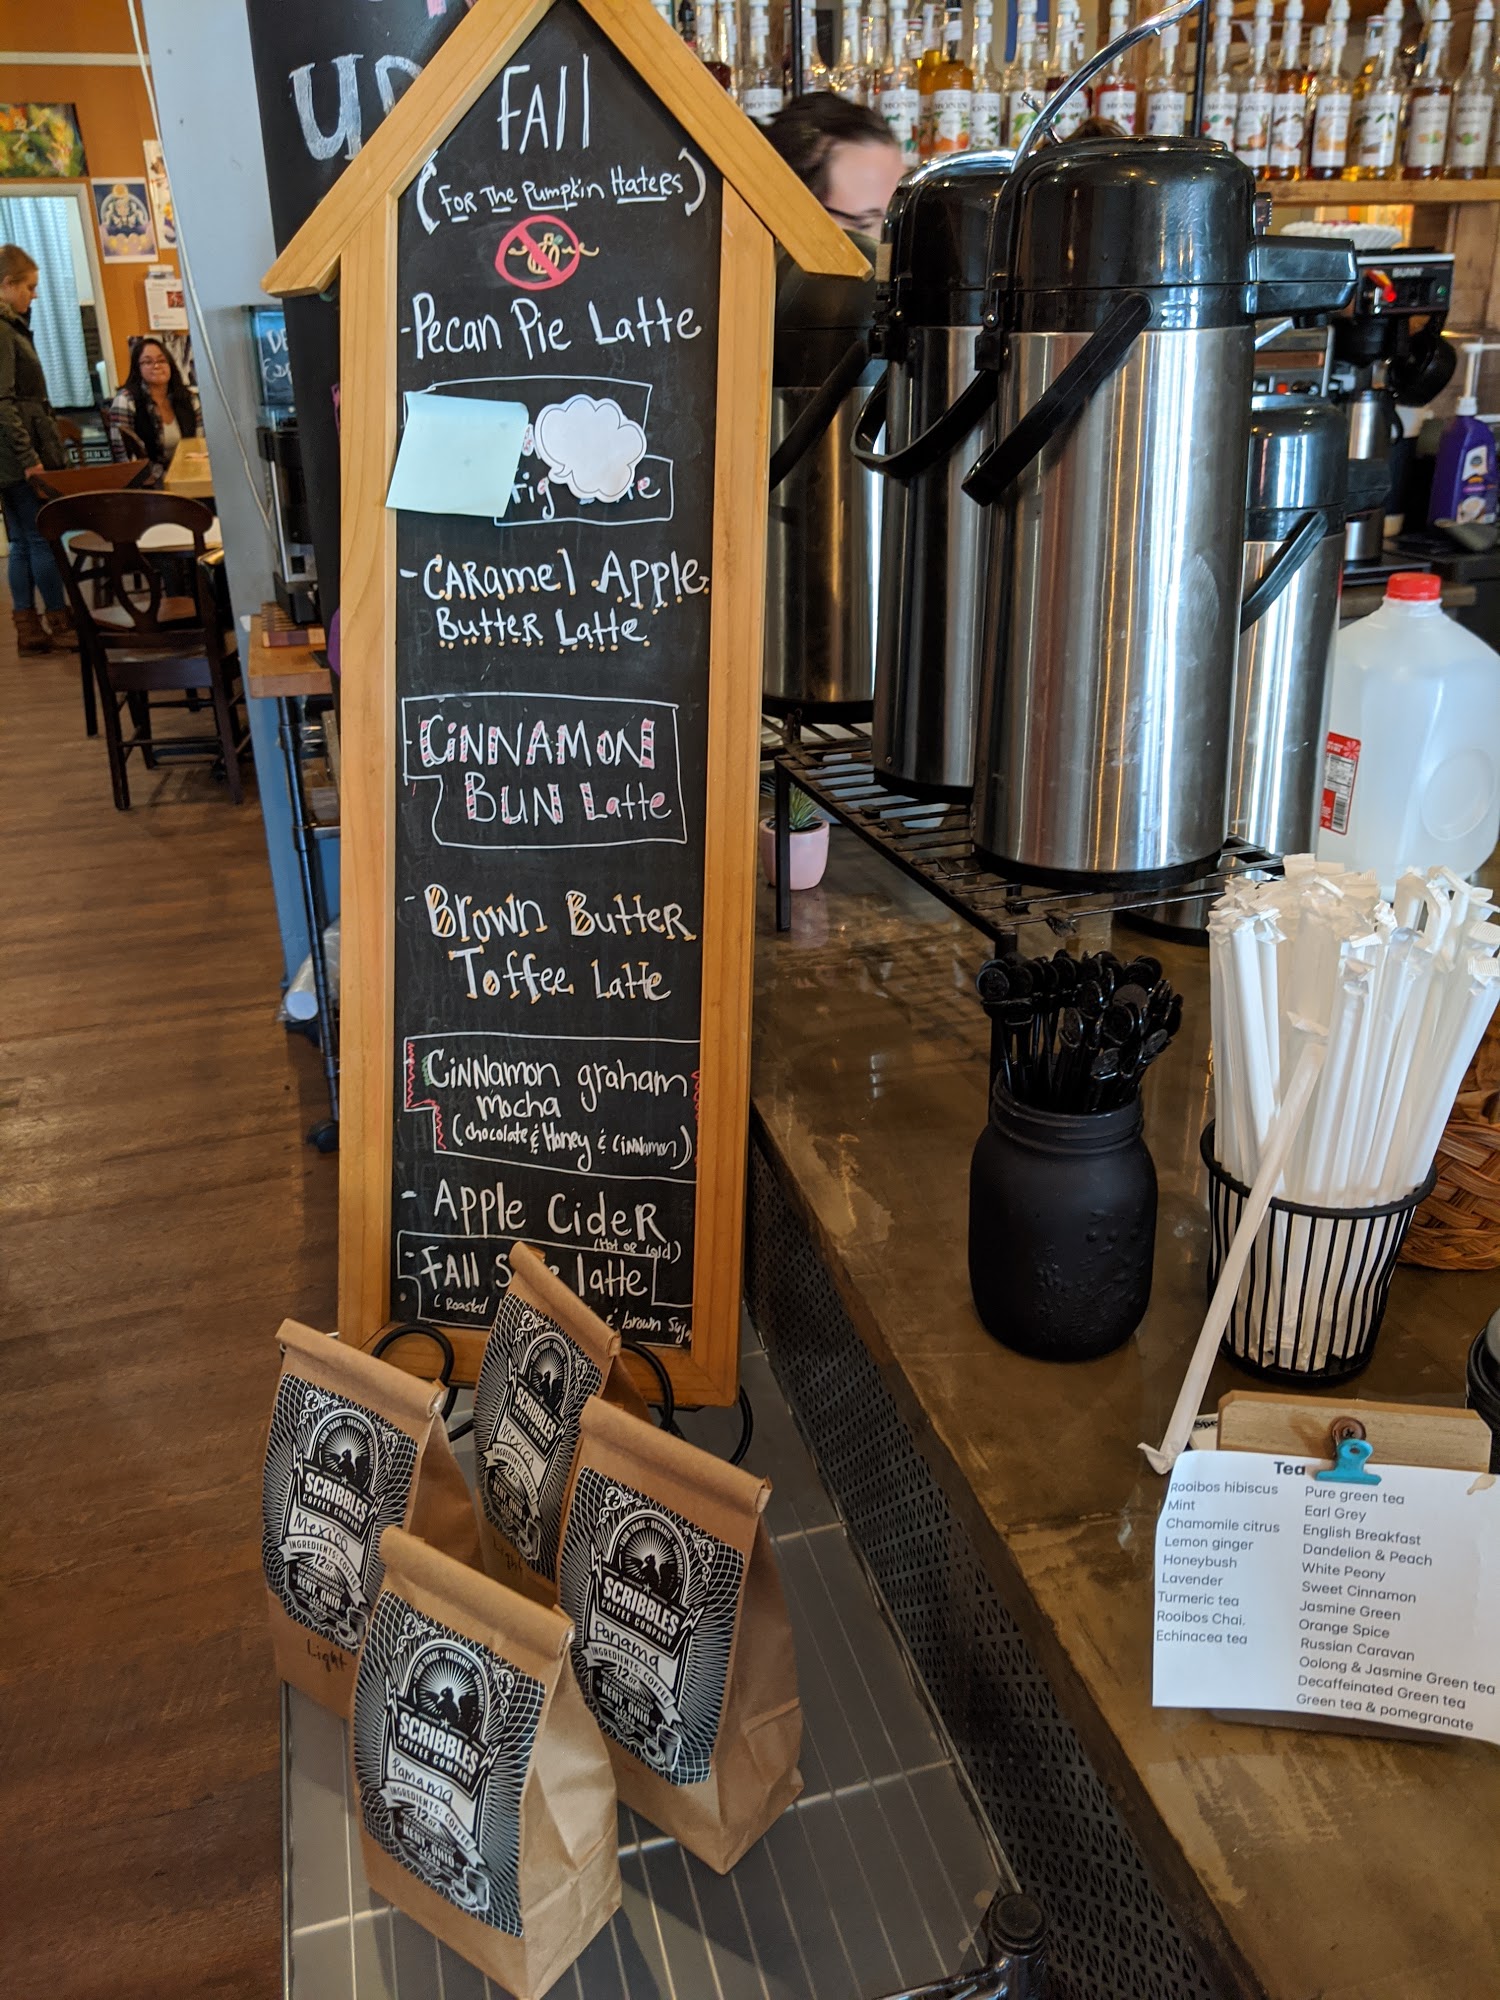 FAll
(For The Pumpkin Haters)
- Pecan Pie Latte
- Caramel Apple
Butter Latte
- Cinnamon
Bun Latte
- Brown Butter
Toffee Latte
Cinnamon graham
mocha
(chocolate & Honey & Cinnamon)
- Apple Cider
(Hot or Cold)
- Fall latte
(Roasted & brown
SCRIBBLES
COFFEE COMPANY
Mexico
INGREDIENTS: COFFEE
12oz
KENT, OHIO
Light
SCRIBBLES
COFFEE COMPANY
Mexico
Light
SCRIBBLES
COFFEE COMPANY
Panama
INGREDIENTS: COFFEE
12oz
KENT, OHIO
SCRIBBLES
COFFEE COMPANY
Panama
INGREDIENTS: COFFEE
12oz
KENT, OHIO
MONIN
BUNN
Tea
Rooibos hibiscus
Mint
Chamomile citrus
Lemon ginger
Honeybush
Lavender
Turmeric tea
Rooibos Chai.
Echinacea tea
Pure green tea
Earl Grey
English Breakfast
Dandelion & Peach
White Peony
Sweet Cinnamon
Jasmine Green
Orange Spice
Russian Caravan
Oolong & Jasmine Green tea
Decaffeinated Green tea
Green tea & pomegranate